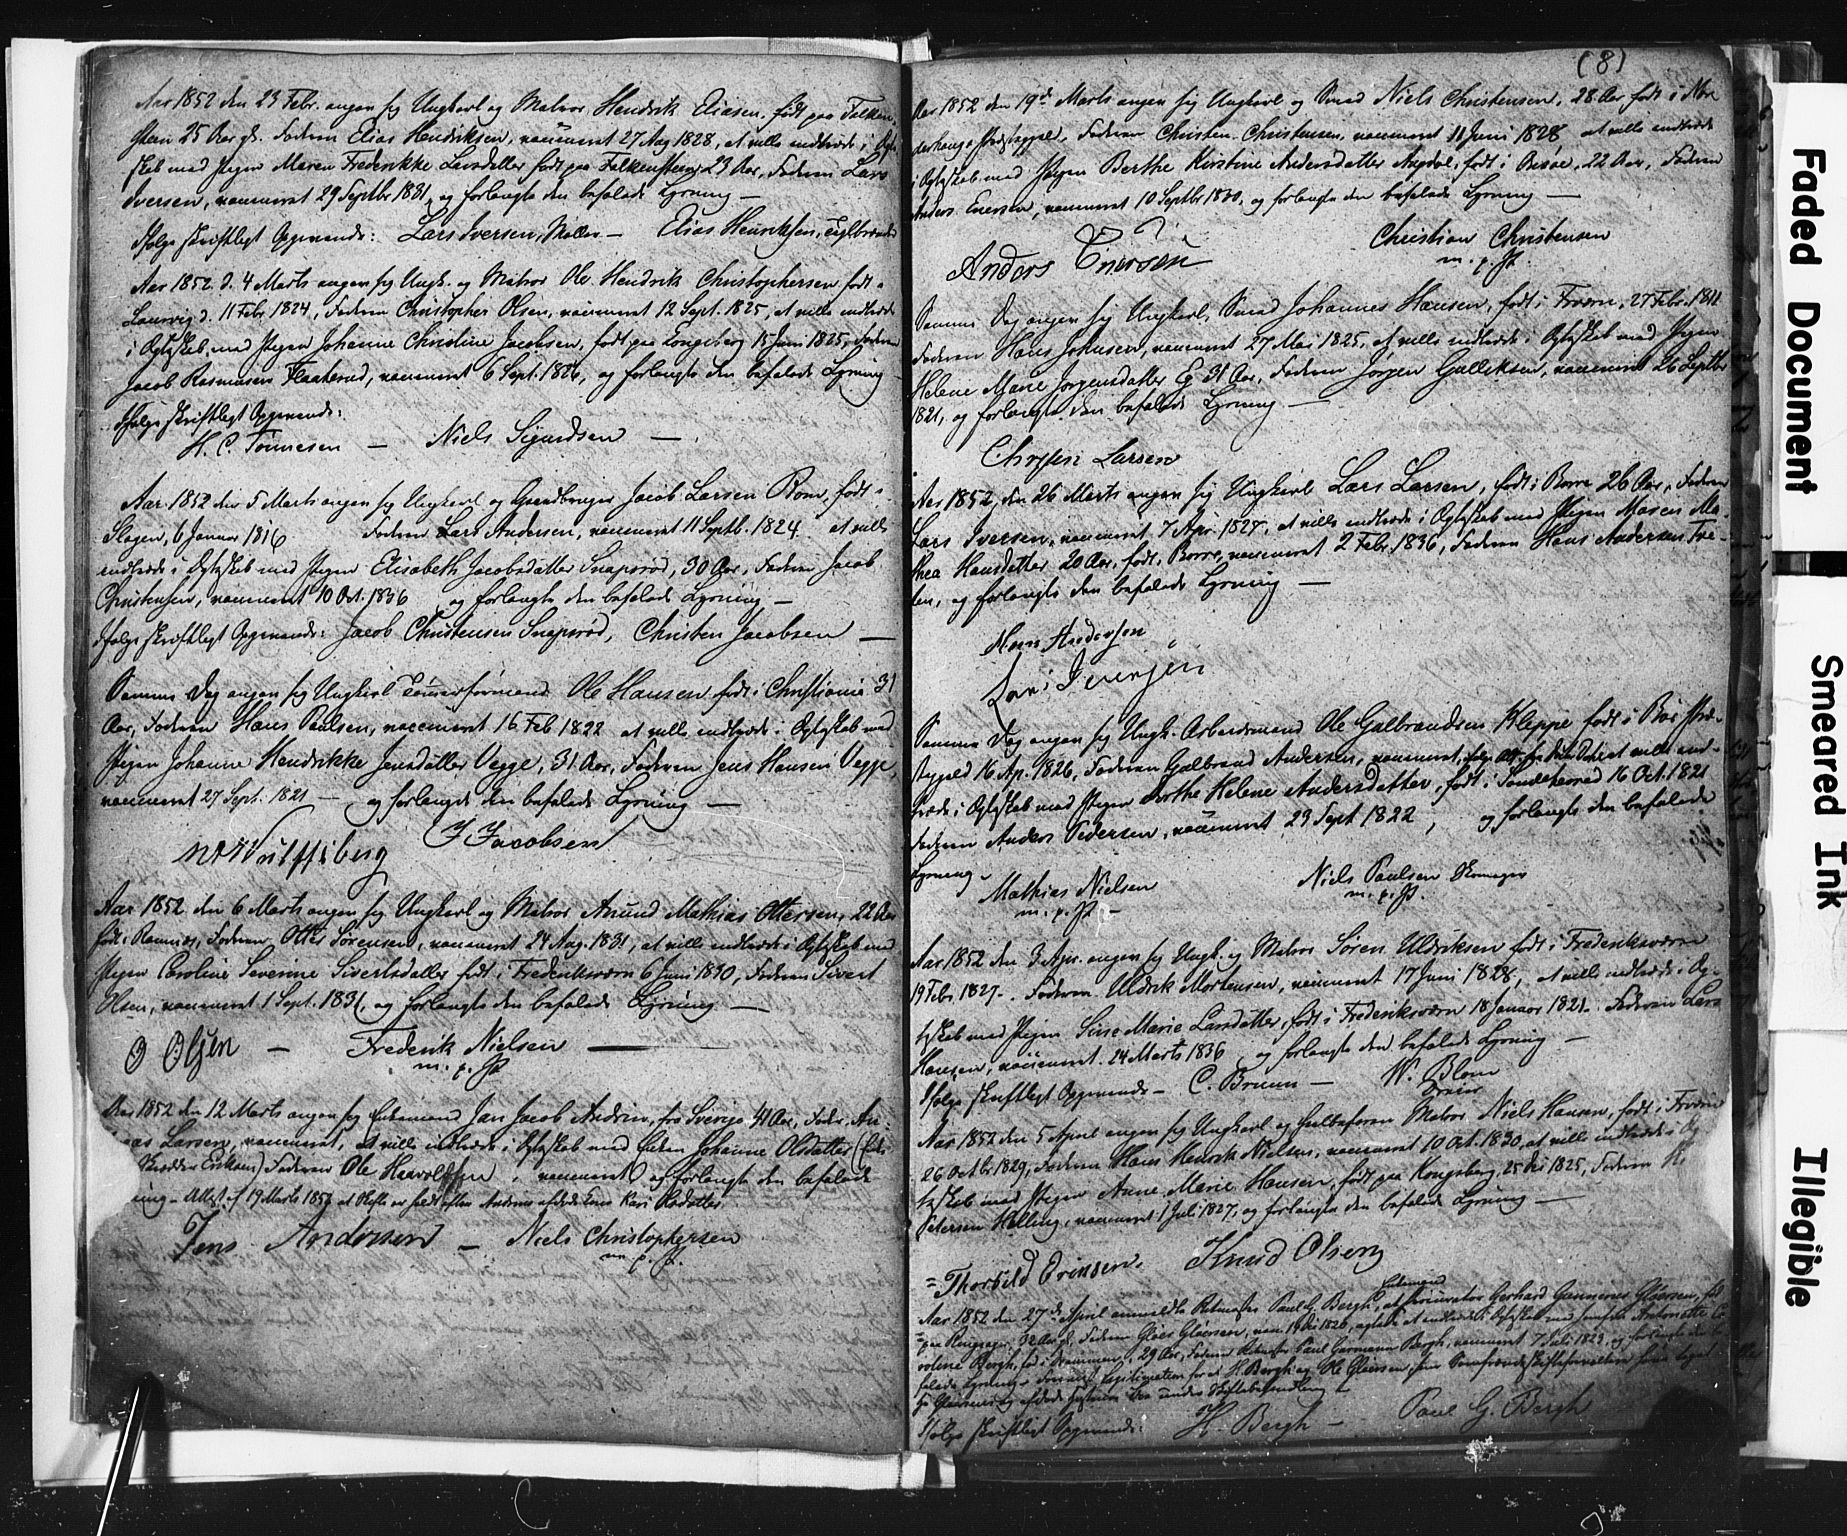 Aar 1852 den 23 Febr. angav sig Ungkarl og Matros Hendrik Eliasen, født paa Falken-
steen 25 Aar gl. Faderen Elias Hendriksen, vaccineret 27 Aug 1828, at ville indtræde i Ægte-
skab med Pigen Maren Fredrikke Larsdatter født paa Falkensteen, 23 Aar, Faderen Lars
Iversen, vaccineret 29 Septbr 1831, og forlangte den befalede Lysning —
Ifølge skriftligt Opgivende: Lars Iversen, Møller — Elias Henriksen, Teglbrænder
Aar 1852 d. 4 Marts angav sig Ungk. og Matros Ole Hendrik Christophersen, født i
Laurvig d. 11 Febr 1824, Faderen Christopher Olsen, vaccineret 12 Sept. 1825, at ville indtræde
i Ægteskab med Pigen Johanne Christine Jacobsen, født paa Longeberg 15 Juni 1825, Faderen
Jacob Rasmussen Flaaterud, vaccineret 6 Sept. 1826, og forlangte den befalede Lysning
Ifølge skriftligt Opgivende:
H. C. Tønnesen — Niels Sigurdsen —
Aar 1852 den 5 Marts angav sig Ungkarl og Gaardbruger Jacob Larsen Rom, født i
Slagen, 6 Januar 1816 Faderen Lars Andersen, vaccineret 11 Septb. 1824 at ville
indtræde i Ægteskab med Pigen Elisabeth Jacobsdatter Snapsrød, 30 Aar, Faderen Jacob
Christensen, vaccineret 10 Oct. 1836 og forlangte den befalede Lysning —
Ifølge skriftligt Opgivende: Jacob Christensen Snapsrød, Christen Jacobsen —
Samme Dag angav sig Ungkarl Ole Hansen født i Christiania 31
Aar, Faderen Hans Paulsen, vaccineret 16 Feb 1822 at ville indtræde i Ægteskab med
Pigen Johanne Hendrikke Jensdatter Vegge, 31 Aar, Faderen Jens Hansen Vegge,
vaccineret 27 Sept. 1821 — og forlanget den befalede Lysning —
J. Jacobsen
Aar 1852 den 6 Marts angav sig Ungkarl og Matros Anund Mathias Ottersen, 22 Aar
født i Ramnes, Faderen Otter Sørensen, vaccineret 24 Aug. 1831, at ville indtræde i Ægteskab med
Pigen Caroline Severine Sivertsdatter født i Frederiksværn 6 Juni 1830, Faderen Sivert
Olsen, vaccineret 1 Sept. 1831, og forlangte den befalede Lysning —
O Olsen — Frederik Nielsen —
m. p. P.
Aar 1852 den 12 Marts angav sig Enkemand Jan Jacob Andrin, fra Sverige 41 Aar, Fader An-
Larsen, vaccineret, at ville indtræde i Ægteskab med Enken Johanne Olsdatter (Enke
Skrædder Eriksen) Faderen Ole Haavolssen, vaccineret og forlangte den befalede
ning — Attest af 19 Marts 185 at Skifte er holdt efter Andrins afdøde Kone Kari Olsdatter
Jens Andersen — Niels Christophersen
m. p. P.
(8)
Aar 1852 den 19d Marts angav sig Ungkarl og Smed Niels Christensen, 28 Aar født i
Præstegjeld, Faderen Christen Christensen, vaccineret 11 Juni 1828 at ville indtræde
i Ægteskab med Pigen Berthe Kirstine Andersdatter født i 22 Aar, Faderen
Anders Enersen, vaccineret 10 Septbr 1830, og forlangte den befalede Lysning —
Christian Christensen
m. p. P.
Anders Enersen
Samme Dag angav sig Ungkarl, Smed Johannes Hansen, født i 27 Febr. 1811
Faderen Hans Johnsen, vaccineret 27 Mai 1825, at ville indtræde i Ægteskab med Pigen
Helene Marie Jørgensdatter Eg 31 Aar, Faderen Jørgen Gulliksen, vaccineret 26 Septbr
1821, og forlangte den befalede Lysning —
Larsen
Aar 1852, den 26 Marts angav sig Ungkarl Lars Larsen, født i Borre 26 Aar, Faderen
Lars Iversen, vaccineret 7 Apr. 1827, at ville indtræde i Ægteskab med Pigen Maren Ma-
thea Hansdatter 20 Aar, født i Borre, vaccineret 2 Febr. 1836, Faderen Hans Andersen
og forlangte den befalede Lysning —
Hans Andersen
Lars Iversen
Samme Dag angav sig Ungk. Arbeidsmand Ole Gulbrandsen Kleppe født i Bøe Præ-
stegjeld 16 Ap. 1826, Faderen Gulbrand Andersen, vaccineret, at ville ind-
træde i Ægteskab med Pigen Berthe Helene Andersdatter, født i Sandeherred 16 Oct. 1821
Faderen Anders Pedersen, vaccineret 29 Sept 1822, og forlangte den befalede
Lysning —
Mathias Nielsen Niels Paulsen
m. p. P. — m. p. P.
Aar 1852 den 3 Apr. angav sig Ungk. og Matros Søren Uldriksen født i Frederiksværn
19 Febr. 1827 — Faderen Uldrik Mortensen, vaccineret 17 Juni 1828, at ville indtræde i Æg-
teskab med Pigen Sine Marie Larsdatter, født i Frederiksværn 18 Januar 1821 — Faderen Lars
Hansen, vaccineret 24 Marts 1836, og forlangte den befalede Lysning —
Ifølge skriftligt Opgivende — C. Bruun — W. Blom
Aar 1852 den 5 April angav sig Ungkarl og Matros Niels Hansen, født i
26 Octbr 1829, Faderen Hans Henrik Nielsen, vaccineret 10 Oct. 1830, at ville indtræde i Æg-
teskab med Pigen Anne Marie Hansen, født paa Kongsberg 25 1825, Faderen
Petersen Helling, vaccineret 1 Juli 1827, og forlangte den befalede Lysning —
Thorkild Eriksen. Knud Olsen
Enkemand
Aar 1852 den 27de April anmeldte Ritmester Paul G. Bergh, at Procurator Gerhard Gløersen, født
paa 32 Aar gl. Faderen Gløer Gløersen, vac. 1826, agtede at indtræde i Ægteskab med Jomfru Antonette Ca-
roline Bergh, født i Drammen, 29 Aar, Faderen Ritmester Paul Garmann Bergh, vaccineret 7 Juli 1823, og forlangte den be-
falede Lysning —
Ifølge skriftligt Opgivende: H. Bergh — Paul G. Bergh
Faded Document
Smeared Ink
Illegible